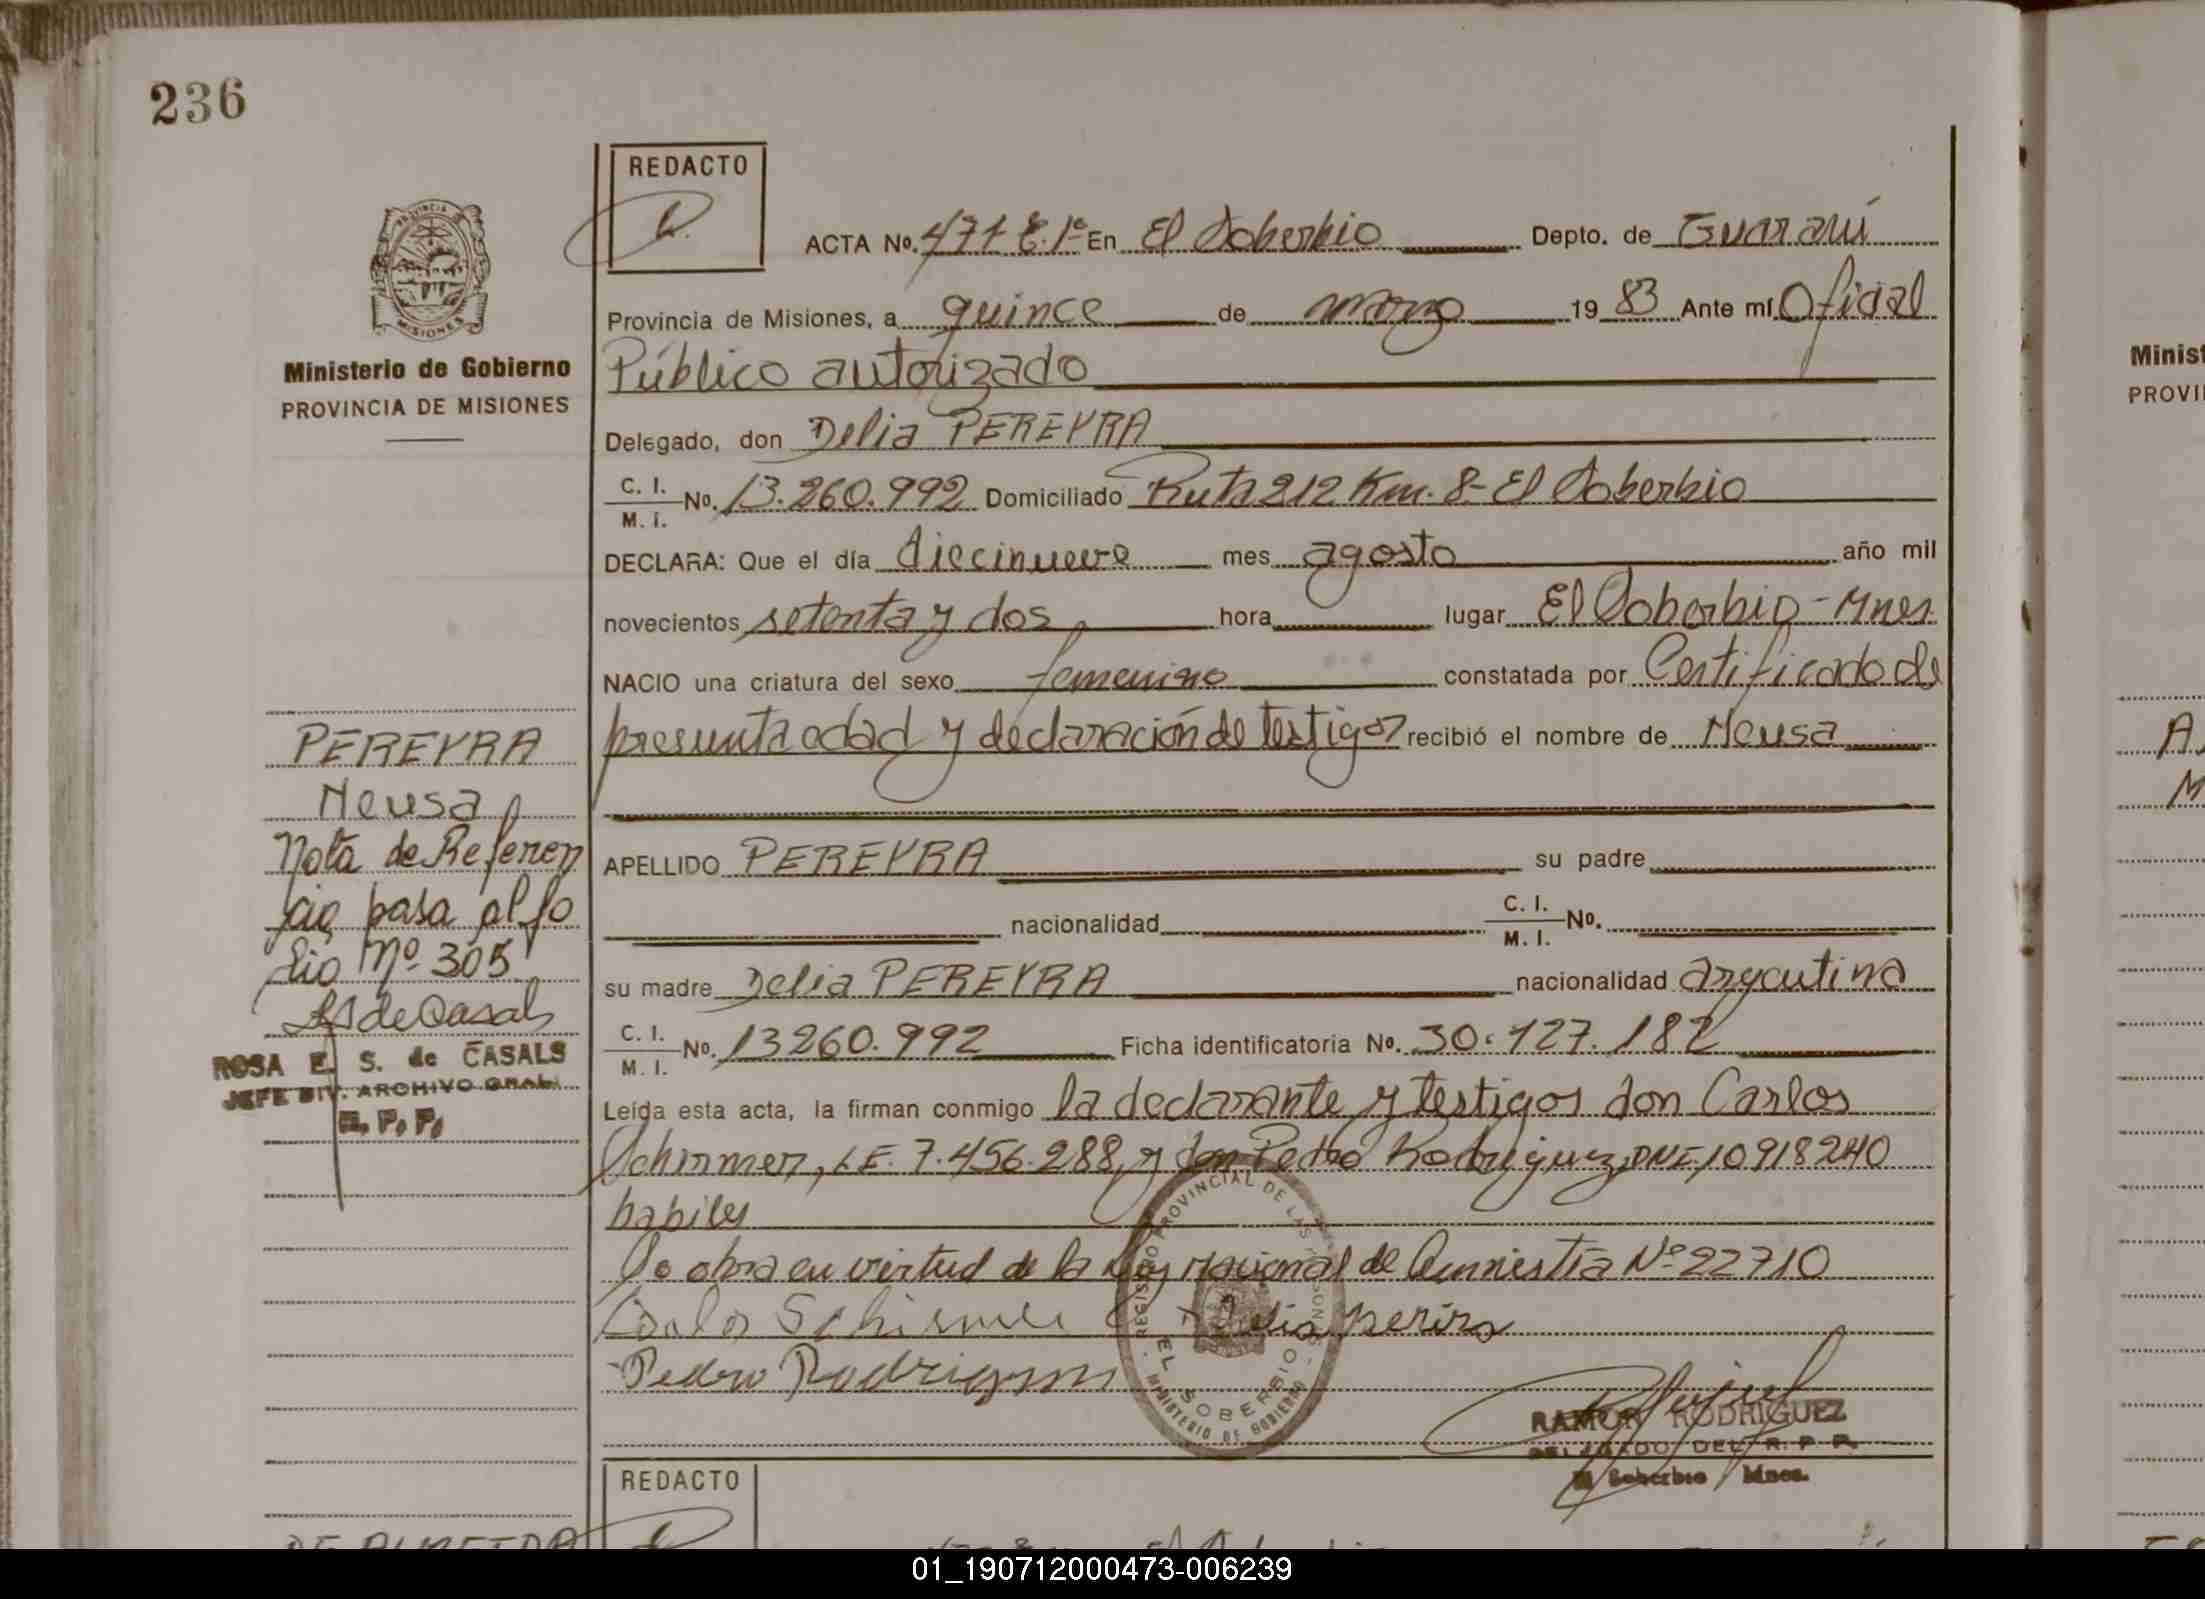 236
REDACTO
ACTA No. 471 E. 1º En El Soberbio Depto. de Guaraní
PROVINCIA
MISIONES
Provincia de Misiones, a quince de marzo 19 83 Ante mí Oficial
Ministerio de Gobierno
PROVINCIA DE MISIONES
Público autorizado
Delegado, don Delia PEREYRA
C. I.
M. I. No. 13.260.992 Domiciliado Ruta 212 Km. 8- El Soberbio
DECLARA: Que el día diecinueve mes agosto año mil
novecientos setenta y dos hora lugar El Soberbio - Mnes.
NACIO una criatura del sexo femenino constatada por Certificado de
presunta edad y declaración de testigos recibió el nombre de Neusa
PEREYRA
Neusa
Nota de Referen
cia pasa al fo
lio Nº 305
ROSA E. S. de CASALS
JEFE DIV. ARCHIVO GRAL.
R. P. P.
APELLIDO PEREYRA su padre
nacionalidad C. I.
M. I. No.
su madre Delia PEREYRA nacionalidad argentina
C. I.
M. I. No. 13260.992 Ficha identificatoria No. 30.727.182
Leída esta acta, la firman conmigo la declarante y testigos don Carlos
Schirmer, LE. 7.456.288, y don Pedro Rodriguez, DNI 10918240
habiles
Se obra en virtud de la Ley Nacional de Amnistía Nº 22710
Carlos Schirmer Delia pereira
Pedro Rodrigues
REGISTRO PROVINCIAL DE LAS PERSONAS
EL SOBERBIO
MINISTERIO DE GOBIERNO
RAMON RODRIGUEZ
DELEGADO DEL R. P. P.
El Soberbio Mnes.
REDACTO
Minist
PROVI
01_190712000473-006239